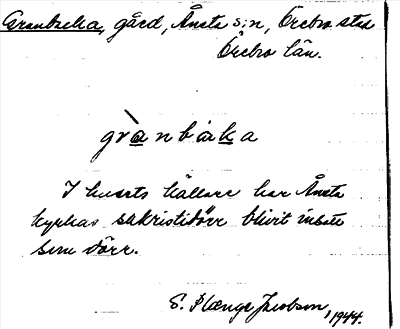 Granbacka, gård, Ånsta s:n, Örebro stad
Örebro län.
grànbàka
I husets källare har Ånsta
kyrkas sakristidörr blivit insatt
som dörr.
S. Plænge Jacobson, 1944.